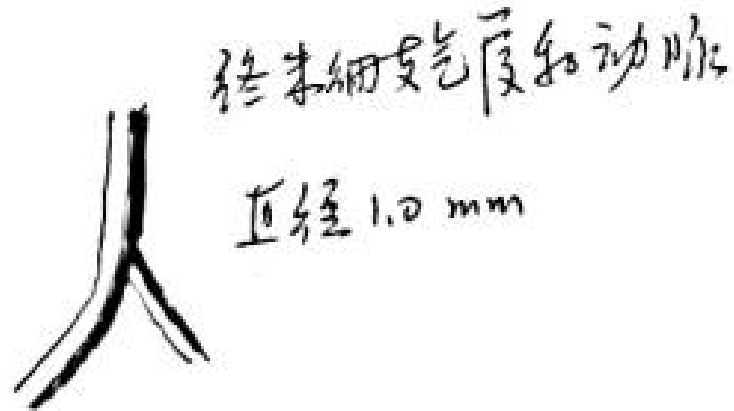 终末细支气管和动脉
直径1.0 mm